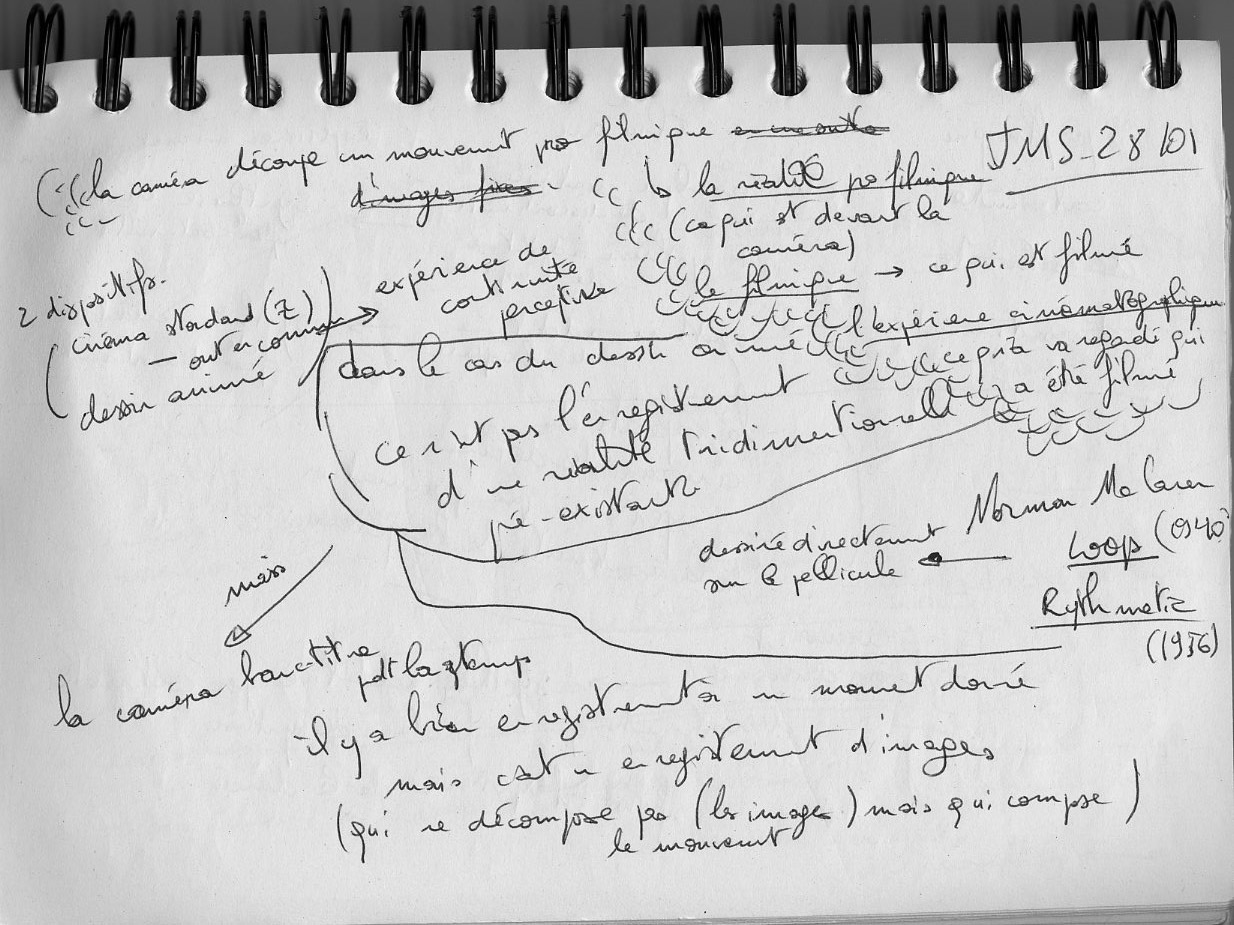 la caméra découpe un mouvement pro filmique en une suite
d'images fixes.
JMS_28/01
↳ la réalité profilmique
(ce qui est devant la
caméra)
le filmique → ce qui est filmé
l'expérience cinématographique
ce qu'on va regarder qui
a été filmé
2 dispositifs.
cinéma standard (Z)
— ont en commun
dessin animé
→ expérience de
continuité
perceptive
dans le cas du dessin animé
ce n'est pas l'enregistrement
d'une réalité tridimentionnelle
pré-existante
Norman Mc Laren
Loop (1940)
Rythmetic
(1956)
dessiné directement
sur la pellicule
mais
la caméra banc-titre
pdt longtemps
il y a bien enregistrement à un moment donné
mais c'est un enregistrement d'images
(qui ne décompose pas (les images) mais qui compose)
le mouvement